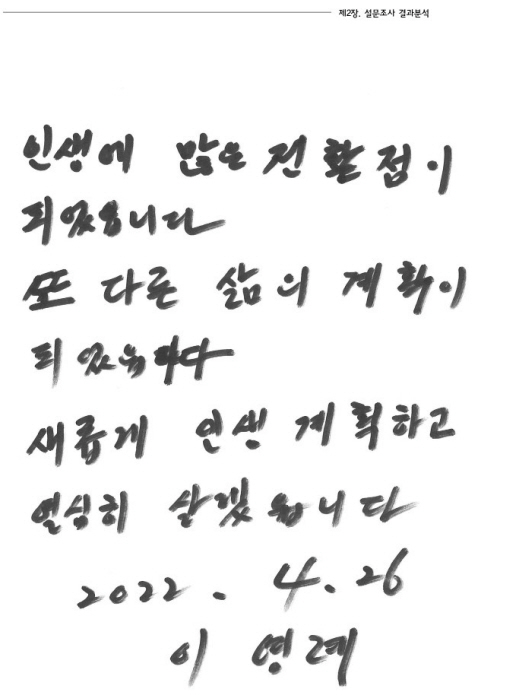 제2장. 설문조사 결과분석
인생에 많은 전환점이
되었읍니다
또 다른 삶의 계획이
되었읍니다
새롭게 인생 계획하고
열심히 살겠읍니다
2022. 4. 26
이 영례